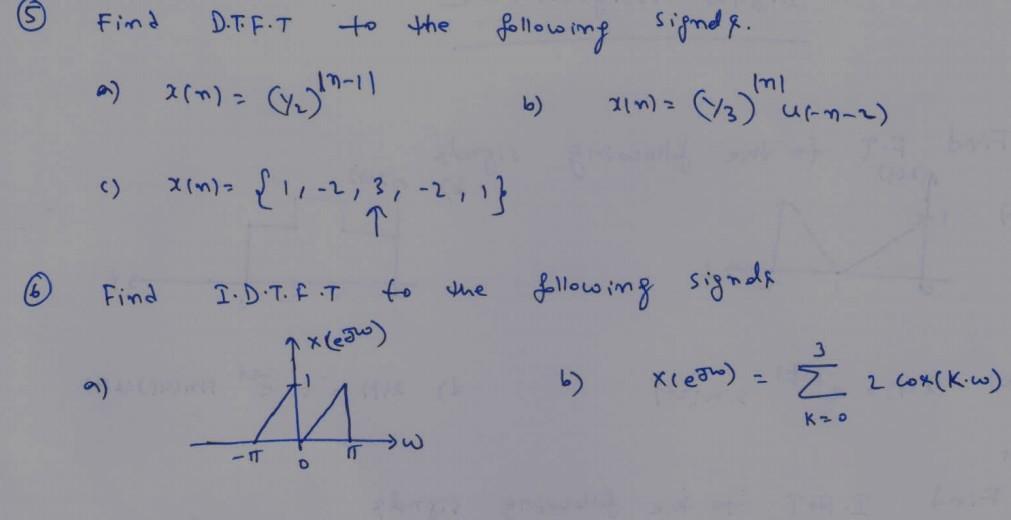 ⑤ Find D.T.F.T to the following signals.
a) x(n) = (1/2)^|n-1| b) x(n) = (1/3)^|n| u(-n-2)
c) x(n) = {1, -2, 3, -2, 1}
↑
⑥ Find I.D.T.F.T to the following signals
a) X(e^jω) b) X(e^jω) = 3 Σ K=0 2 cos(K.ω)
1
-π 0 π ω